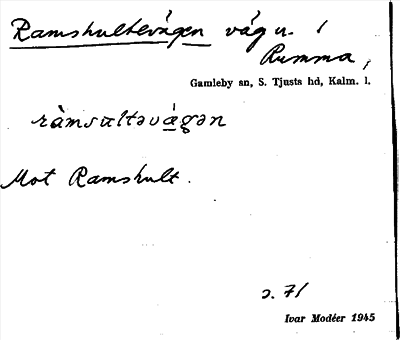 Ramshultevägen väg u. /
Rumma,
Gamleby sn, S. Tjusts hd, Kalm. l.
ràmsɯltəvá̱gən
Mot Ramshult.
s. 71
Ivar Modéer 1945